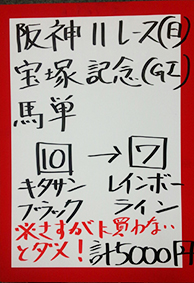 阪神11レース(日)
宝塚記念(GI)
馬単
10 → 7
キタサン レインボー
ブラック ライン
※さすがに買わない
とダメ! 計5000円